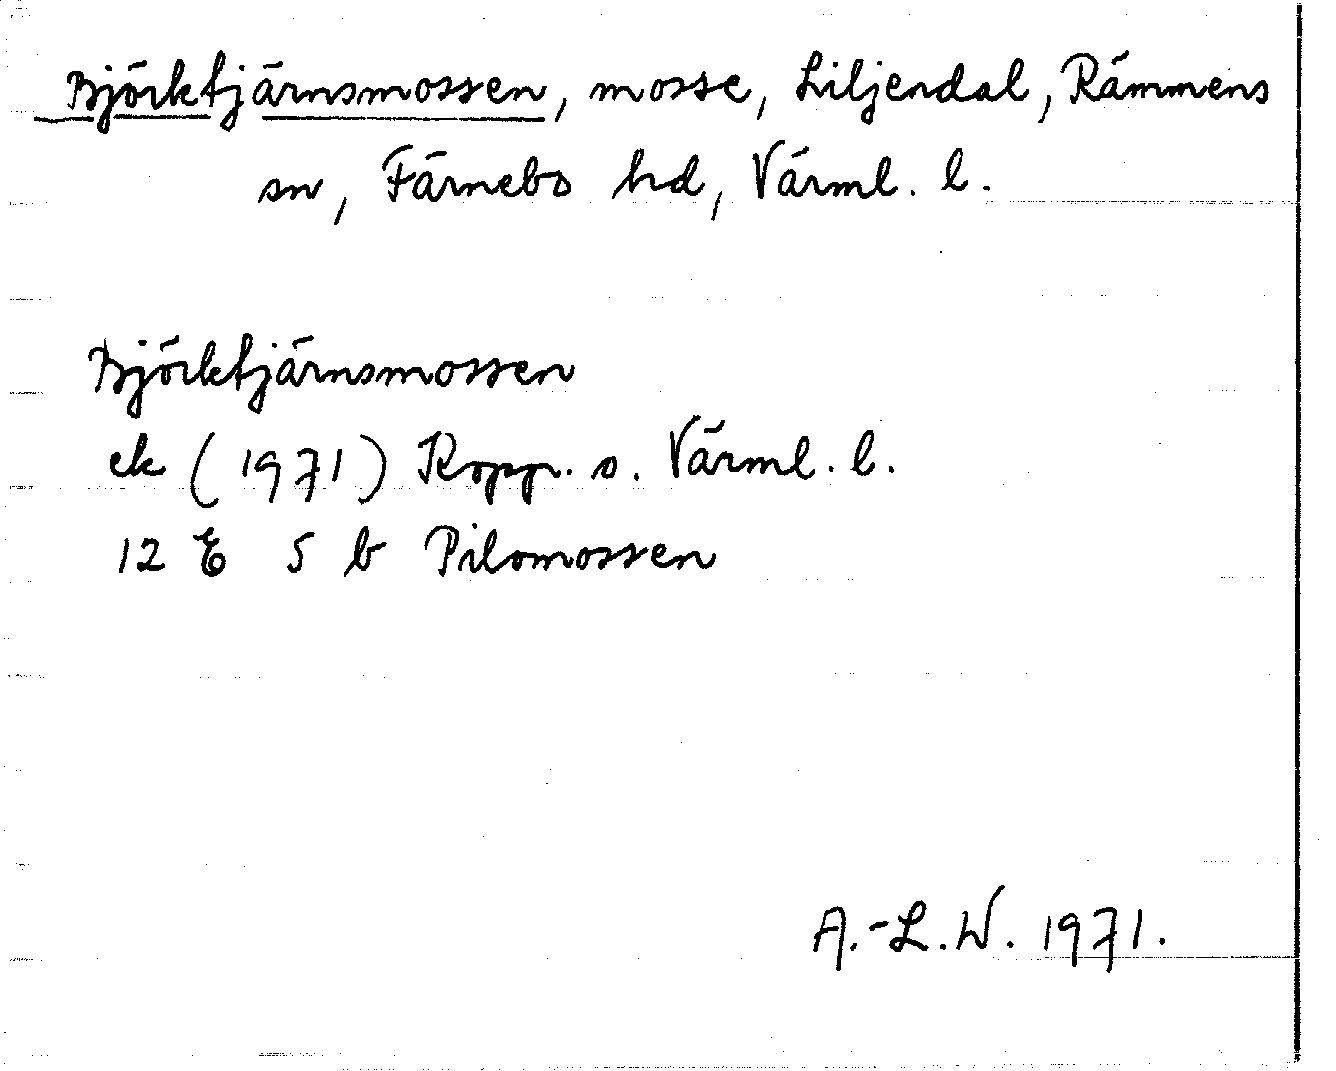 Björktjärnsmossen, mosse, Liljendal, Rämmens
sn, Färnebo hd, Värml. l.
Björktjärnsmossen
ek (1971) Kopp. o. Värml. l.
12 E 5 b Pilomossen
A.-L.W. 1971.